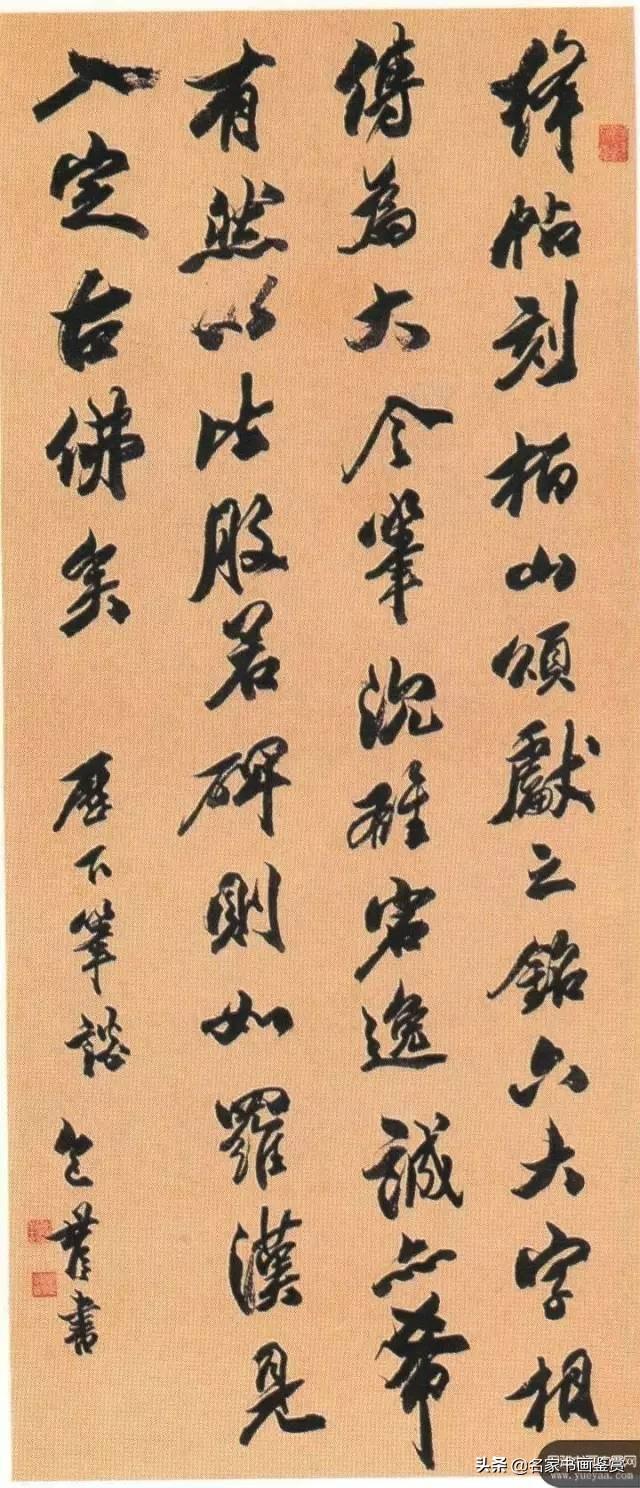 絳帖刻栢山頌獻之銘六大字相
傳為大令筆沉雄宕逸誠亦希
有然以比般若碑則如羅漢見
入定古佛矣
歷下筆談 包 書
头条 @名家书画鉴赏
www.yueyaa.com